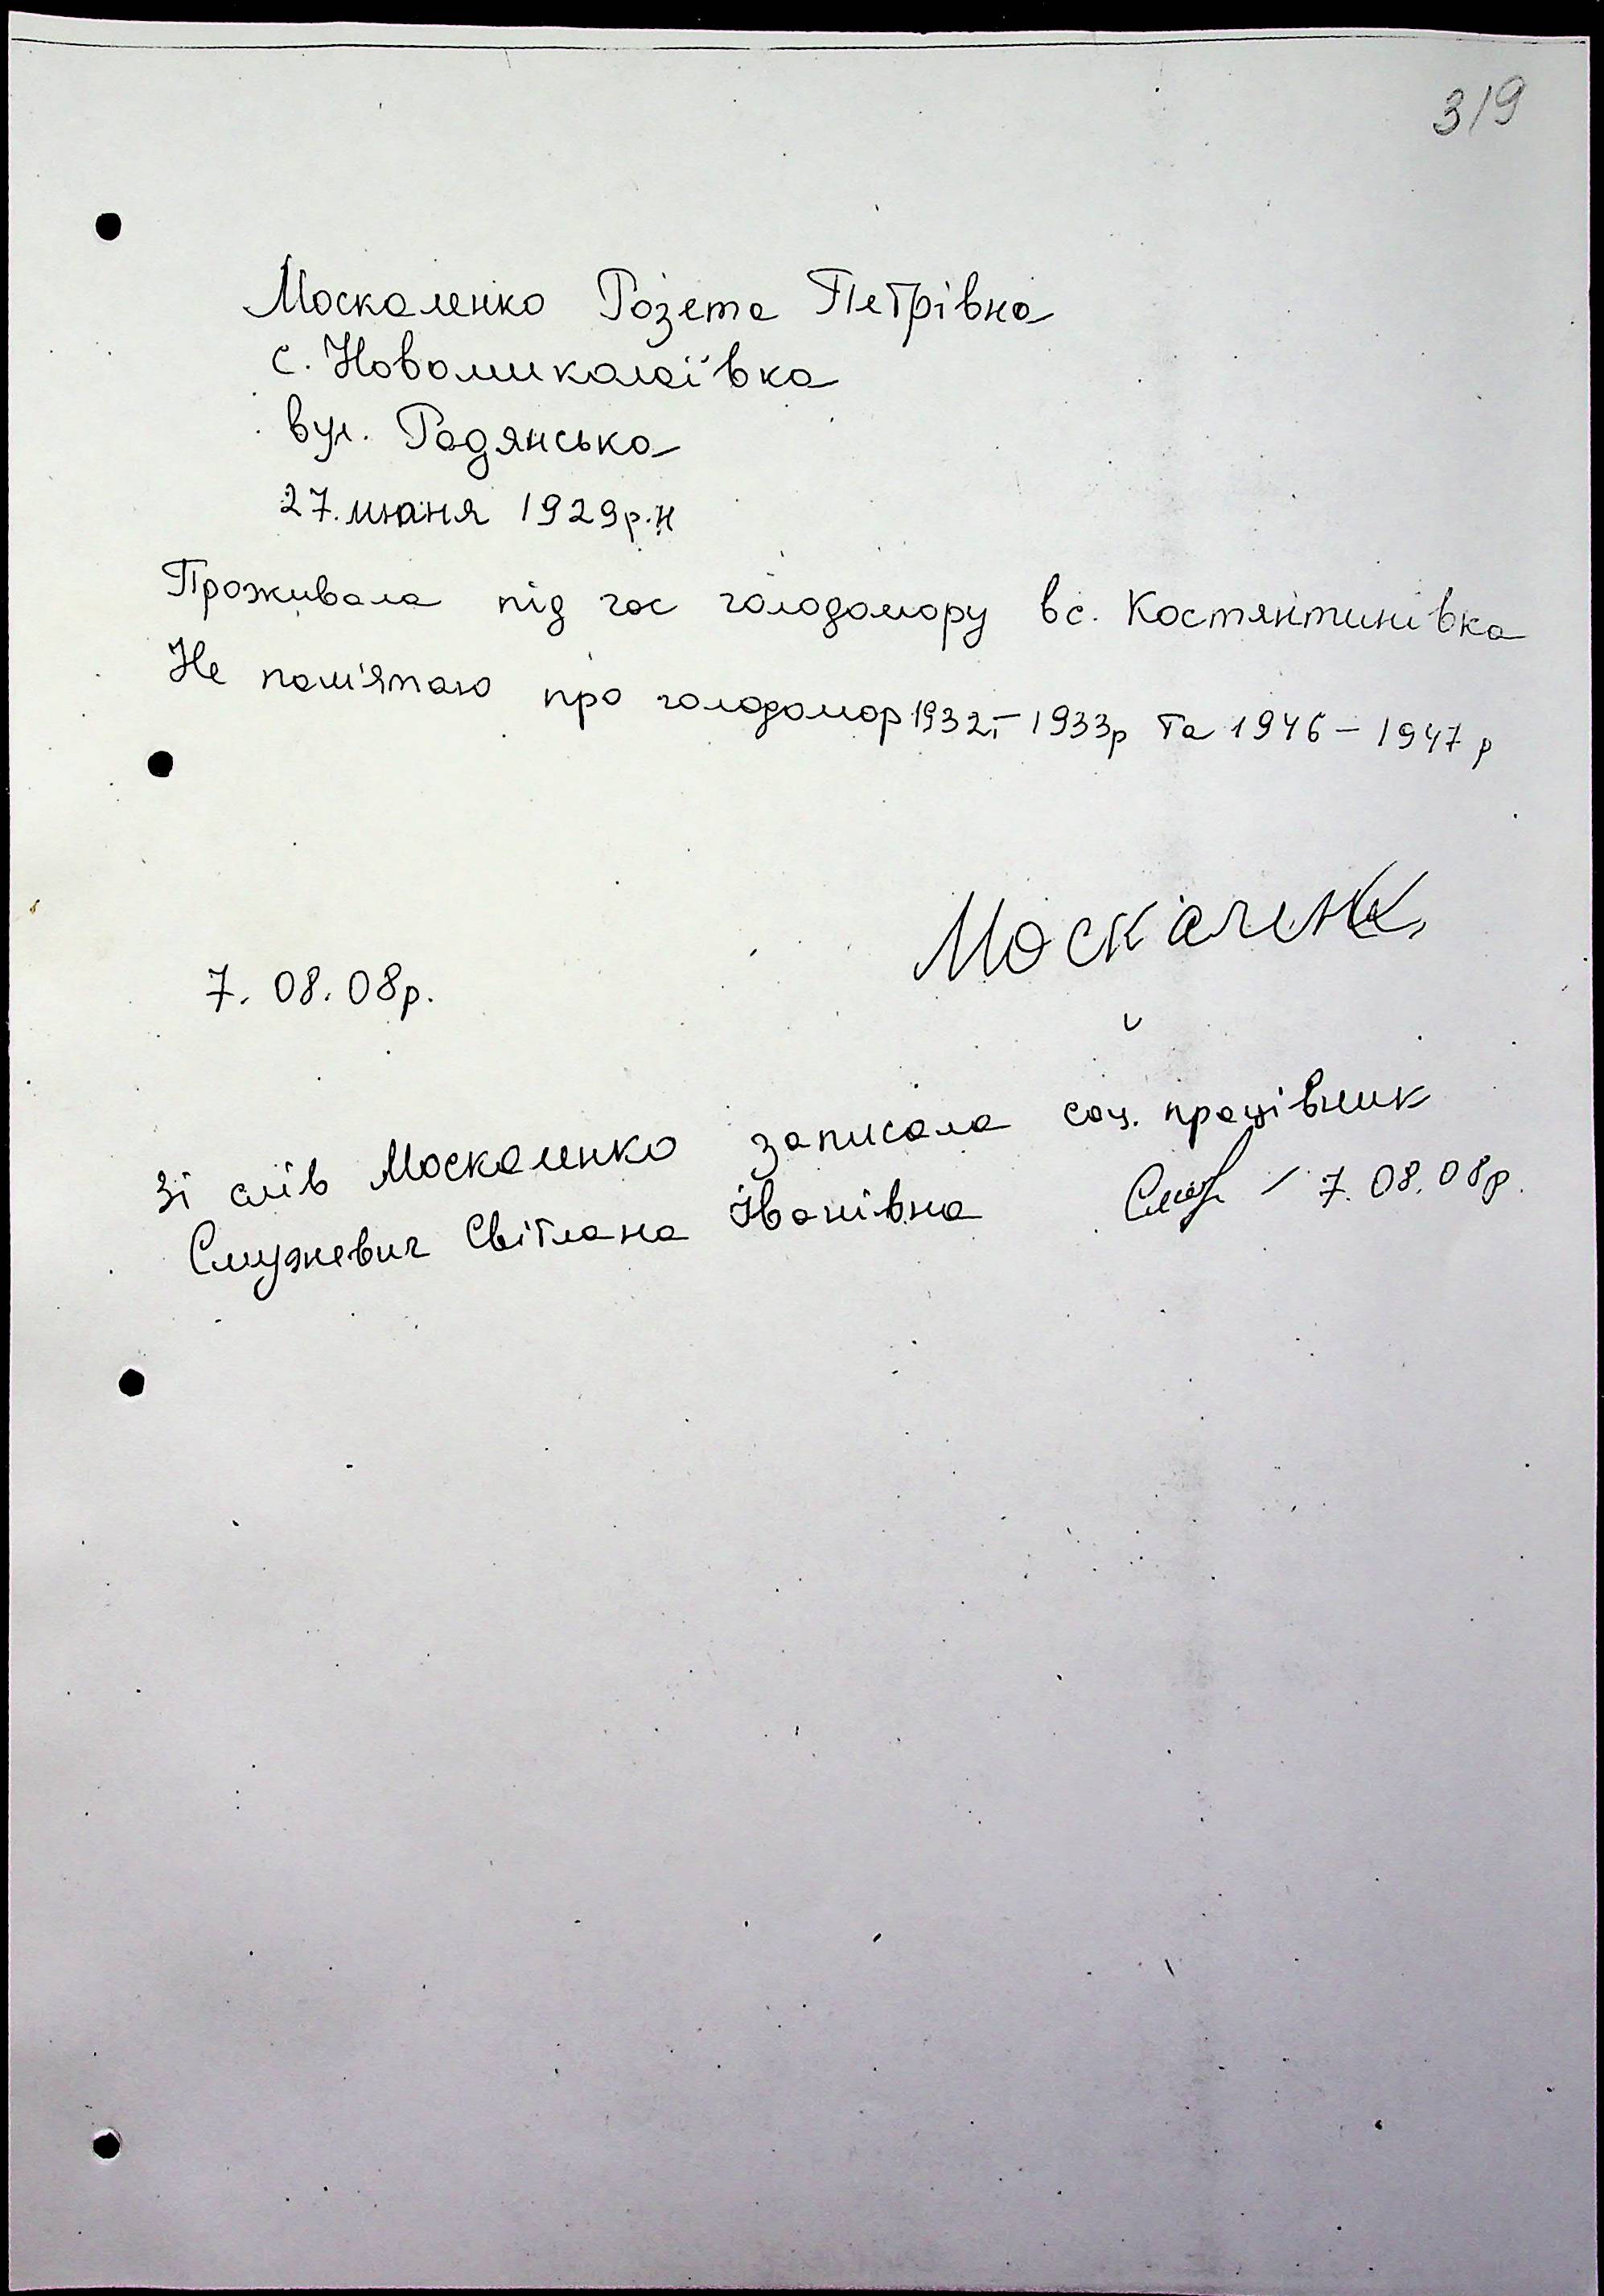 319
Москаленко Розета Петрівна
с. Новомиколаївка
вул. Радянська
27. июня 1929р.н
Проживала під час голодомору в с. Костянтинівка
Не пам'ятаю про голодомор 1932,- 1933р та 1946 - 1947 р
Москаленк
7. 08. 08р.
Зі слів Москаленко записала соц. працівник
Смужевич Світлана Іванівна / 7. 08. 08р.